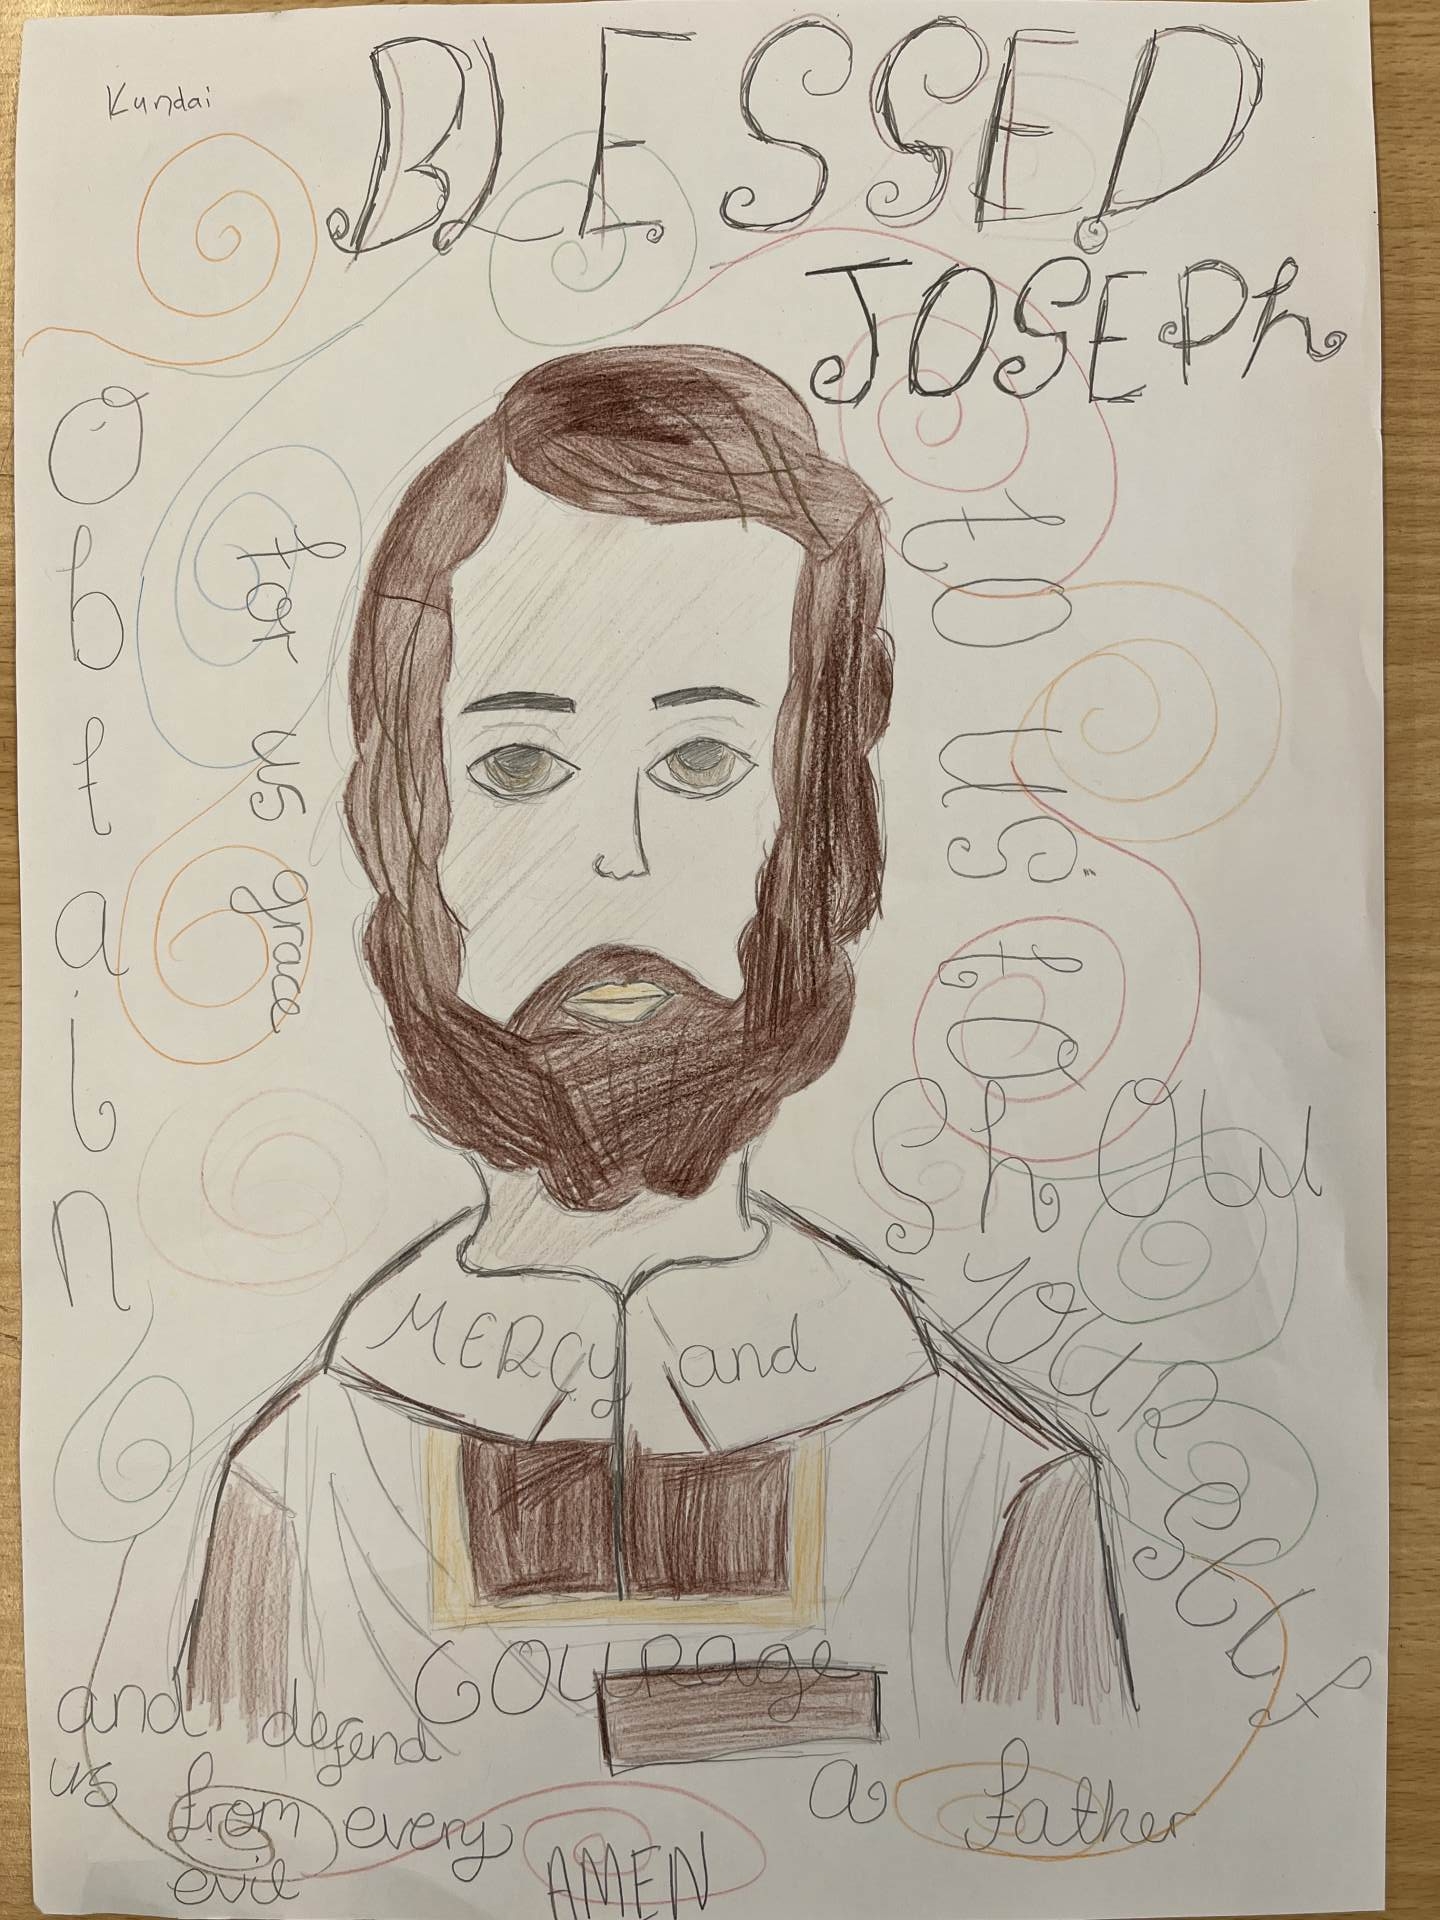 Kundai
BLESSED
JOSEPh
to us to
Show
YOURSELF
a father
Obtain
for us grace
MERCY and
COURage
and defend
us from every
evil
AMEN